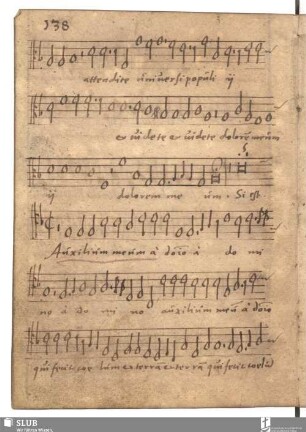 138
attendite universi populi ij
et videte et videte dolorem meum
ij dolorem me um. Si est
Auxilium meum à dom̄o à do mi
no à do mi no auxilium meū à dom̄o
qui fecit cae lum et terrā et terrā qui fecit coelū
SLUB